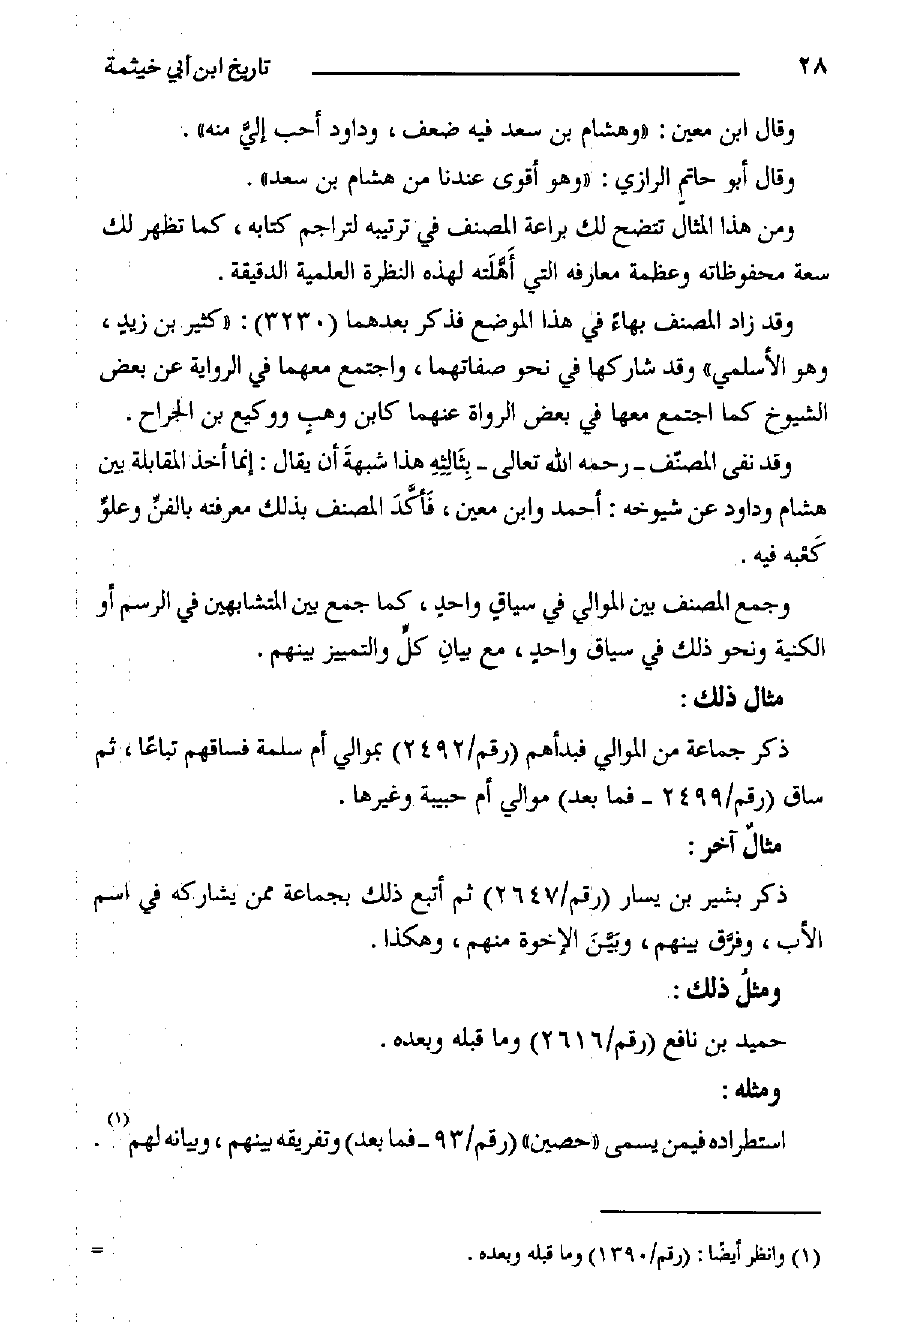 ٢٨ تاريخ ابن أبي خيثمة
وقال ابن معين : «وهشام بن سعد فيه ضعف ، وداود أحب إليَّ منه» .
وقال أبو حاتمٍ الرازي : «وهو أقوى عندنا من هشام بن سعد» .
ومن هذا المثال تتضح لك براعة المصنف في ترتيبه لتراجم كتابه ، كما تظهر لك
سعة محفوظاته وعظمة معارفه التي أَهَّلَته لهذه النظرة العلمية الدقيقة .
وقد زاد المصنف بهاءً في هذا الموضع فذكر بعدهما (٣٢٣٠) : «كثير بن زيدٍ ،
وهو الأسلمي» وقد شاركها في نحو صفاتهما ، واجتمع معهما في الرواية عن بعض
الشيوخ كما اجتمع معها في بعض الرواة عنهما كابن وهبٍ ووكيع بن الجراح .
وقد نفى المصنِّف ـ رحمه الله تعالى ـ بِثَالِثِهِ هذا شبهةَ أن يقال : إنما أخذ المقابلة بين
هشام وداود عن شيوخه : أحمد وابن معين ، فَأَكَّدَ المصنف بذلك معرفته بالفنِّ وعلوِّ
كَعْبه فيه .
وجمع المصنف بين الموالي في سياقٍ واحدٍ ، كما جمع بين المتشابهين في الرسم أو
الكنية ونحو ذلك في سياق واحدٍ ، مع بيانِ كلٍّ والتمييز بينهم .
مثال ذلك :
ذكر جماعة من الموالي فبدأهم (رقم/٢٤٩٢) بموالي أم سلمة فساقهم تباعًا ، ثم
ساق (رقم/٢٤٩٩ ـ فما بعد) موالي أم حبيبة وغيرها .
مثالٌ آخر :
ذكر بشير بن يسار (رقم/٢٦٤٧) ثم أتبع ذلك بجماعة ممن يشاركه في اسم
الأب ، وفرَّق بينهم ، وبَيَّنَ الإخوة منهم ، وهكذا .
ومثلُ ذلك :
حميد بن نافع (رقم/٢٦١٦) وما قبله وبعده .
ومثله :
استطراده فيمن يسمى «حصين» (رقم/٩٣ ـ فما بعد) وتفريقه بينهم ، وبيانه لهم(١) .
(١) وانظر أيضًا : (رقم/١٣٩٠) وما قبله وبعده . =